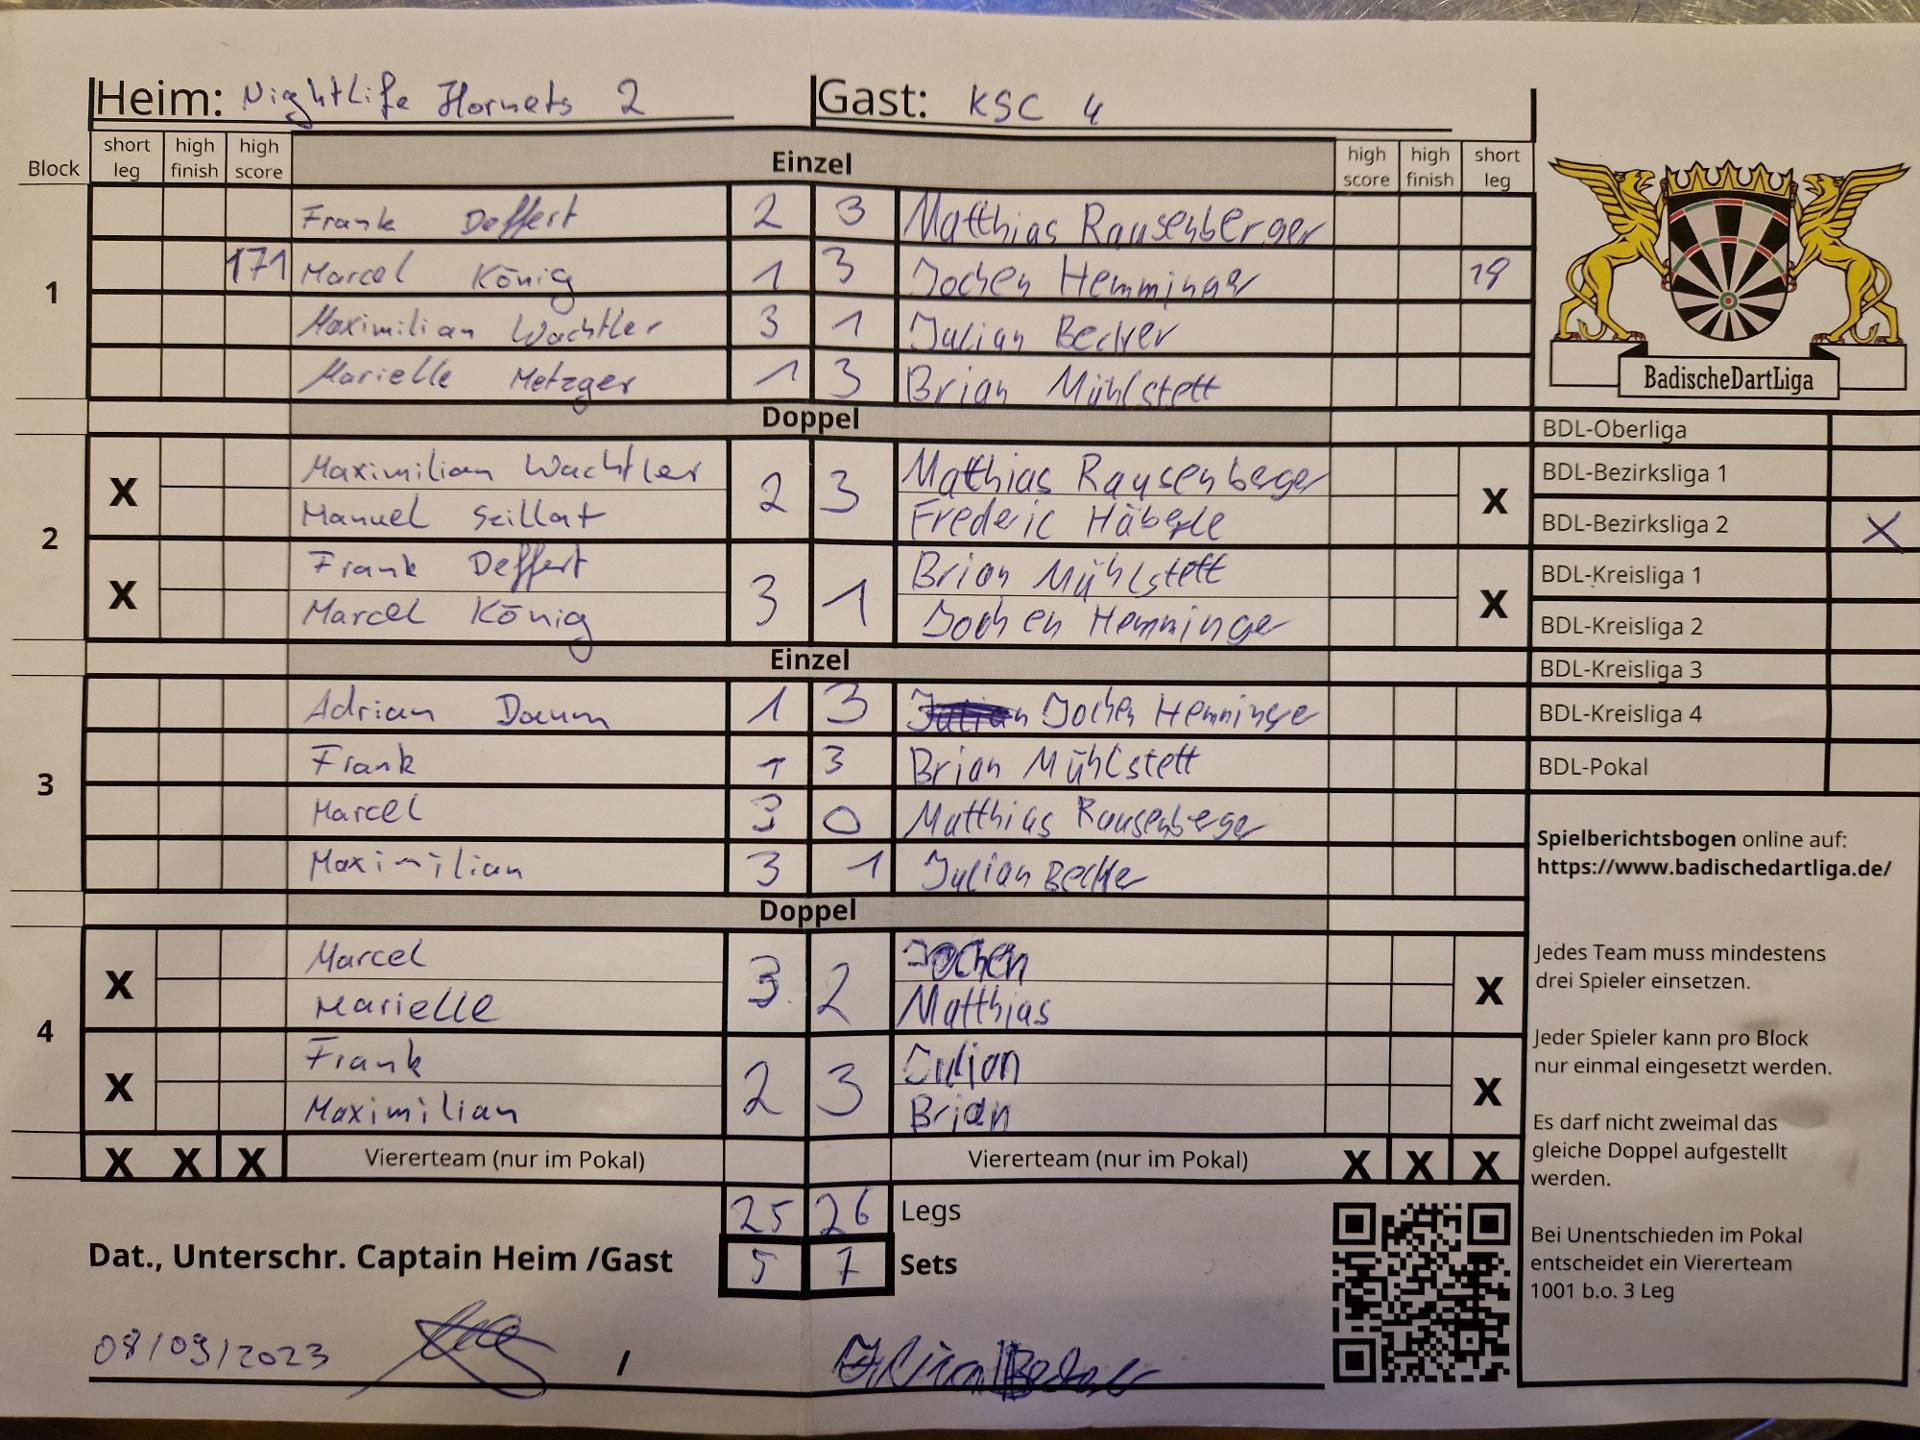 Heim: Nightlife Hornets 2 Gast: KSC 4
Block short leg high finish high score Einzel high score high finish short leg
1
Frank Deffert 2 3 Matthias Rausenberger
171 Marcel König 1 3 Jochen Hemminger 19
Maximilian Wachtler 3 1 Julian Becker
Marielle Metzger 1 3 Brian Mühlstett
Doppel
2
X Maximilian Wachtler 2 3 Matthias Rausenberger X
Manuel Szillat Frederic Häberle
X Frank Deffert 3 1 Brian Mühlstett X
Marcel König Jochen Hemminger
Einzel
3
Adrian Daum 1 3 Jochen Hemminger
Frank 1 3 Brian Mühlstett
Marcel 3 0 Matthias Rausenberger
Maximilian 3 1 Julian Becker
Doppel
4
X Marcel 3 2 Jochen X
Marielle Matthias
X Frank 2 3 Julian X
Maximilian Brian
X X X Viererteam (nur im Pokal) Viererteam (nur im Pokal) X X X
25 26 Legs
Dat., Unterschr. Captain Heim /Gast 5 7 Sets
08/09/2023 /
BadischeDartLiga
BDL-Oberliga
BDL-Bezirksliga 1
BDL-Bezirksliga 2 X
BDL-Kreisliga 1
BDL-Kreisliga 2
BDL-Kreisliga 3
BDL-Kreisliga 4
BDL-Pokal
Spielberichtsbogen online auf:
https://www.badischedartliga.de/
Jedes Team muss mindestens
drei Spieler einsetzen.
Jeder Spieler kann pro Block
nur einmal eingesetzt werden.
Es darf nicht zweimal das
gleiche Doppel aufgestellt
werden.
Bei Unentschieden im Pokal
entscheidet ein Viererteam
1001 b.o. 3 Leg